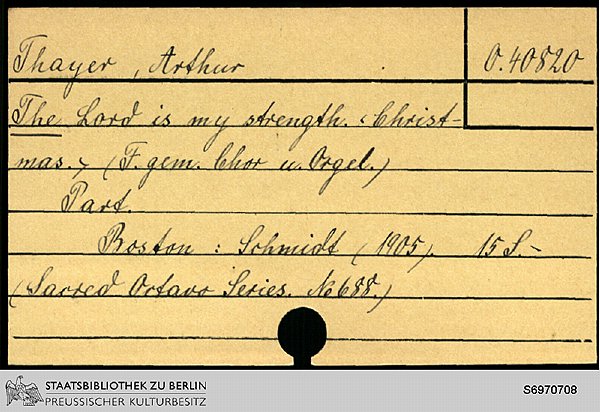 Thayer, Arthur
O. 40820
The Lord is my strength. <Christ-
mas.> (F. gem. Chor u. Orgel.)
Part.
Boston : Schmidt (1905). 15 S.-
(Sacred Octavo Series. No 688.)
STAATSBIBLIOTHEK ZU BERLIN
PREUSSISCHER KULTURBESITZ
S6970708